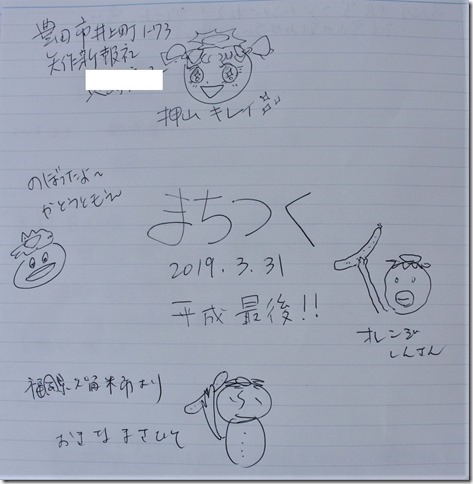 豊田市井上町1-73
矢作新報社
押山 キレイ
のぼったよ〜
かとうともえ
まちつく
2019.3.31
平成最後!!
オレンジ
しんさん
福岡県久留米市より
おきなまさひと